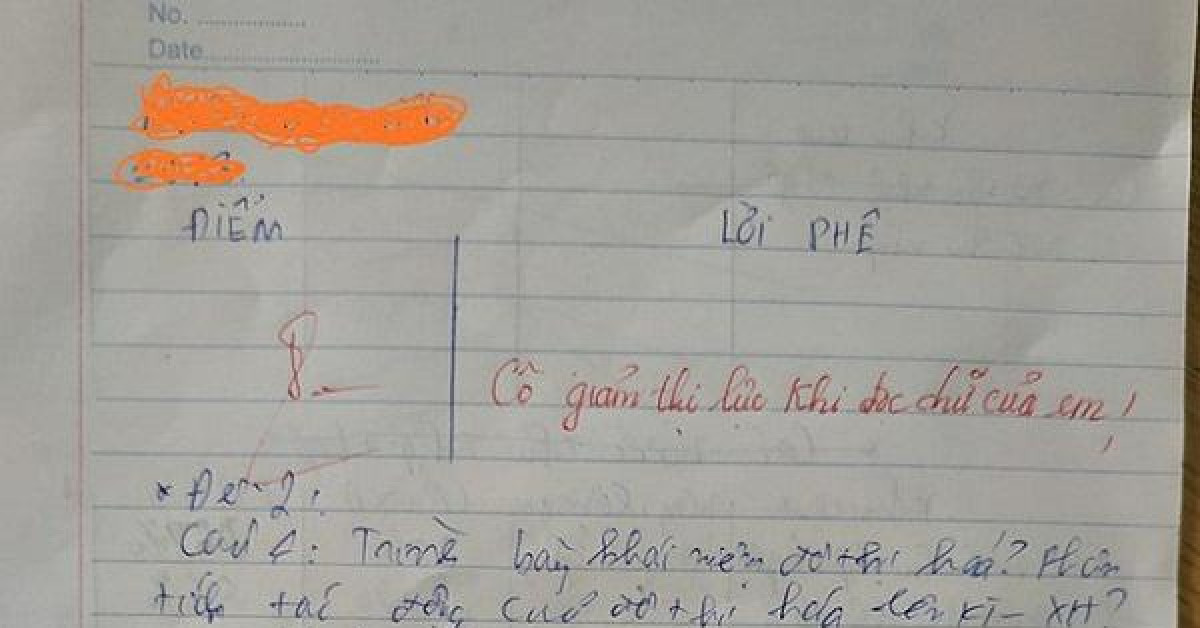 No. ................
Date..........................
ĐIỂM
LỜI PHÊ
8
Cô giảm thị lực khi đọc chữ của em!
* Đề 2:
Câu 1: Trình bày khái niệm đô thị hoá? Phân
tích tác động của đô thị hóa lên KT-XH?